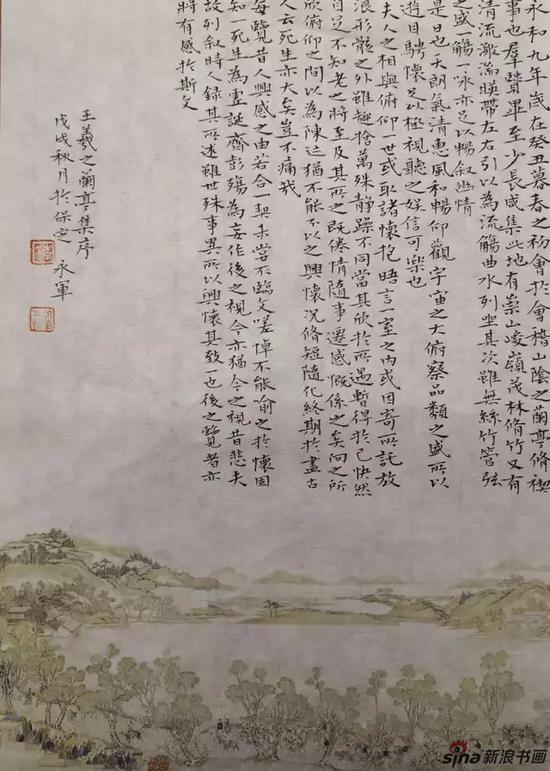 永和九年歲在癸丑暮春之初會於會稽山陰之蘭亭脩禊
事也羣賢畢至少長咸集此地有崇山峻嶺茂林脩竹又有
清流激湍暎帶左右引以為流觴曲水列坐其次雖無絲竹管弦
之盛一觴一詠亦足以暢叙幽情
是日也天朗氣清惠風和暢仰觀宇宙之大俯察品類之盛所以
遊目騁懷足以極視聽之娛信可樂也
夫人之相與俯仰一世或取諸懷抱晤言一室之內或因寄所託放
浪形骸之外雖趣捨萬殊靜躁不同當其欣於所遇暫得於己快然
自足不知老之將至及其所之既倦情隨事遷感慨係之矣向之所
欣俯仰之間以為陳迹猶不能不以之興懷況脩短隨化終期於盡古
人云死生亦大矣豈不痛哉
每覽昔人興感之由若合一契未嘗不臨文嗟悼不能喻之於懷固
知一死生為虛誕齊彭殤為妄作後之視今亦猶今之視昔悲夫
故列叙時人錄其所述雖世殊事異所以興懷其致一也後之覽者亦
將有感於斯文
王羲之蘭亭集序
戊戌秋月於保定 永軍
sina新浪书画